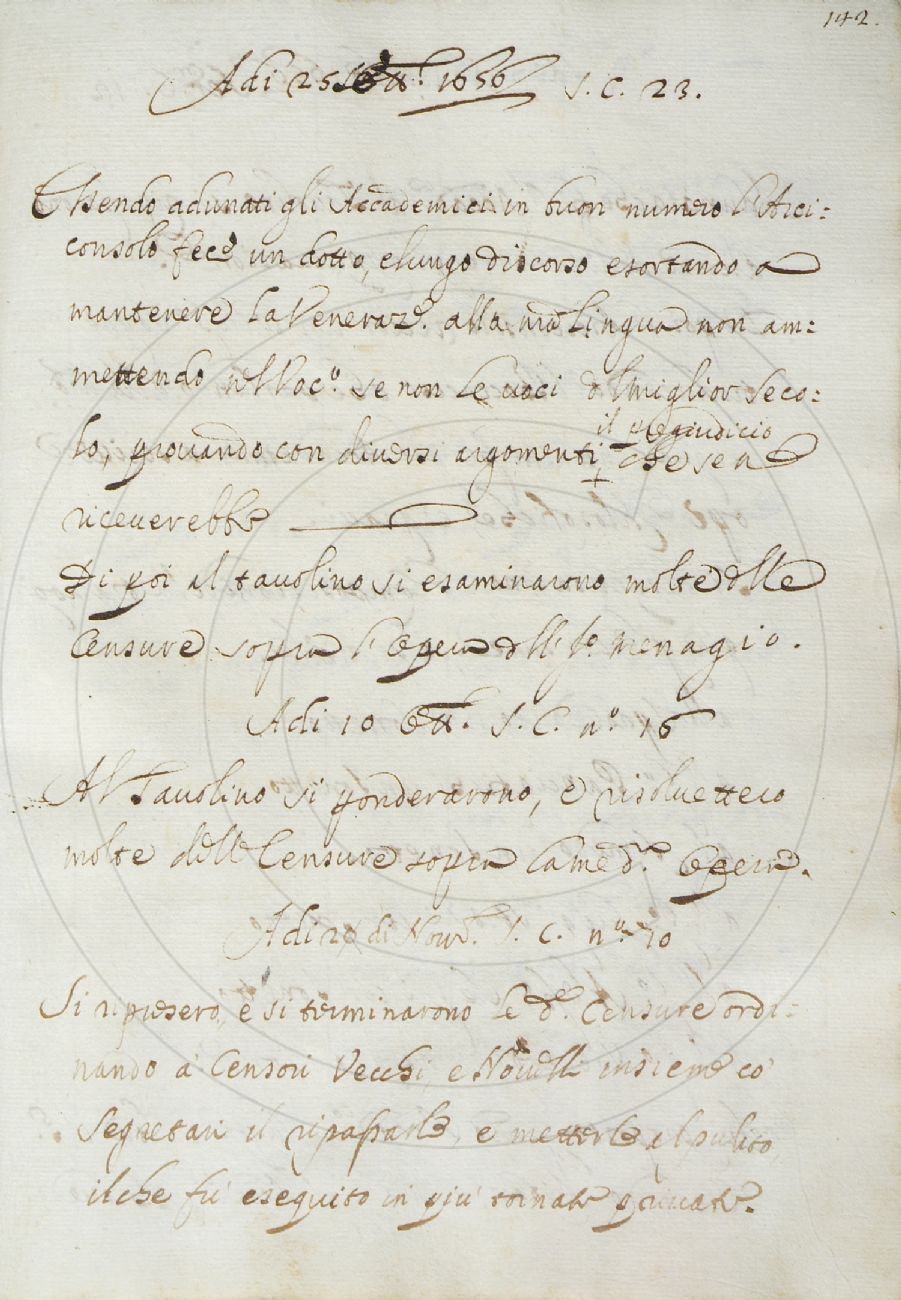 142.
Adi 25 Sett.e 1656 S. C. 23.
Essendo adunati gli Accademici in buon numero l'Arci:
consolo fece un dotto, e lungo discorso esortando a
mantenere la Veneraz.e alla nra Lingua non am:
mettendo nel Voc.o se non le voci del miglior seco:
lo, provando con diversi argomenti il pregiudicio che se n
riceverebbe
Di poi al tavolino si esaminarono molte delle
Censure sopra l'Opera del Menagio.
Adi 10 Ott.e S. C. n.o 16
Al Tavolino si ponderarono, e risoluettero
molte delle Censure sopra la med.a Opera.
Adi di Nov.e S. C. n.o 10
Si ripresero, e si terminarono le d.e Censure ordi:
nando a' Censori Vecchi, e Novelli insieme co'
Segretari il ripassarle, e metterle al pulito,
il che fu' eseguito in piu' tornate private.